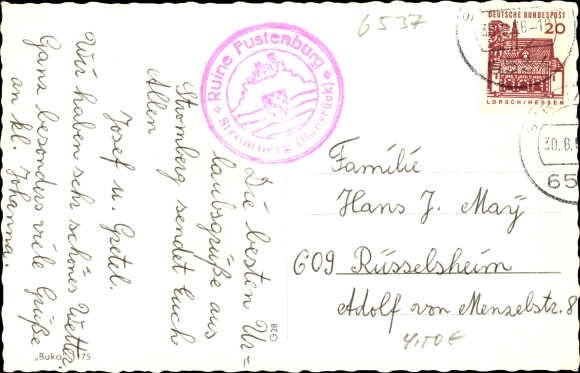 6537
DEUTSCHE BUNDESPOST
20
LORSCH/HESSEN
30.8.
65
Ruine Fustenburg
Stromberg (Hunsrück)
Die besten Ur=
laubsgrüße aus
Stromberg sendet Euch
Allen
Josef u. Gretel.
Wir haben sehr schönes Wetter.
Ganz besonders viele Grüße
an kl. Johanna.
Familie
Hans J. Maÿ
609 Rüsselsheim
Adolf von Menzelstr. 8
4,50 €
G28
"Buka" 175